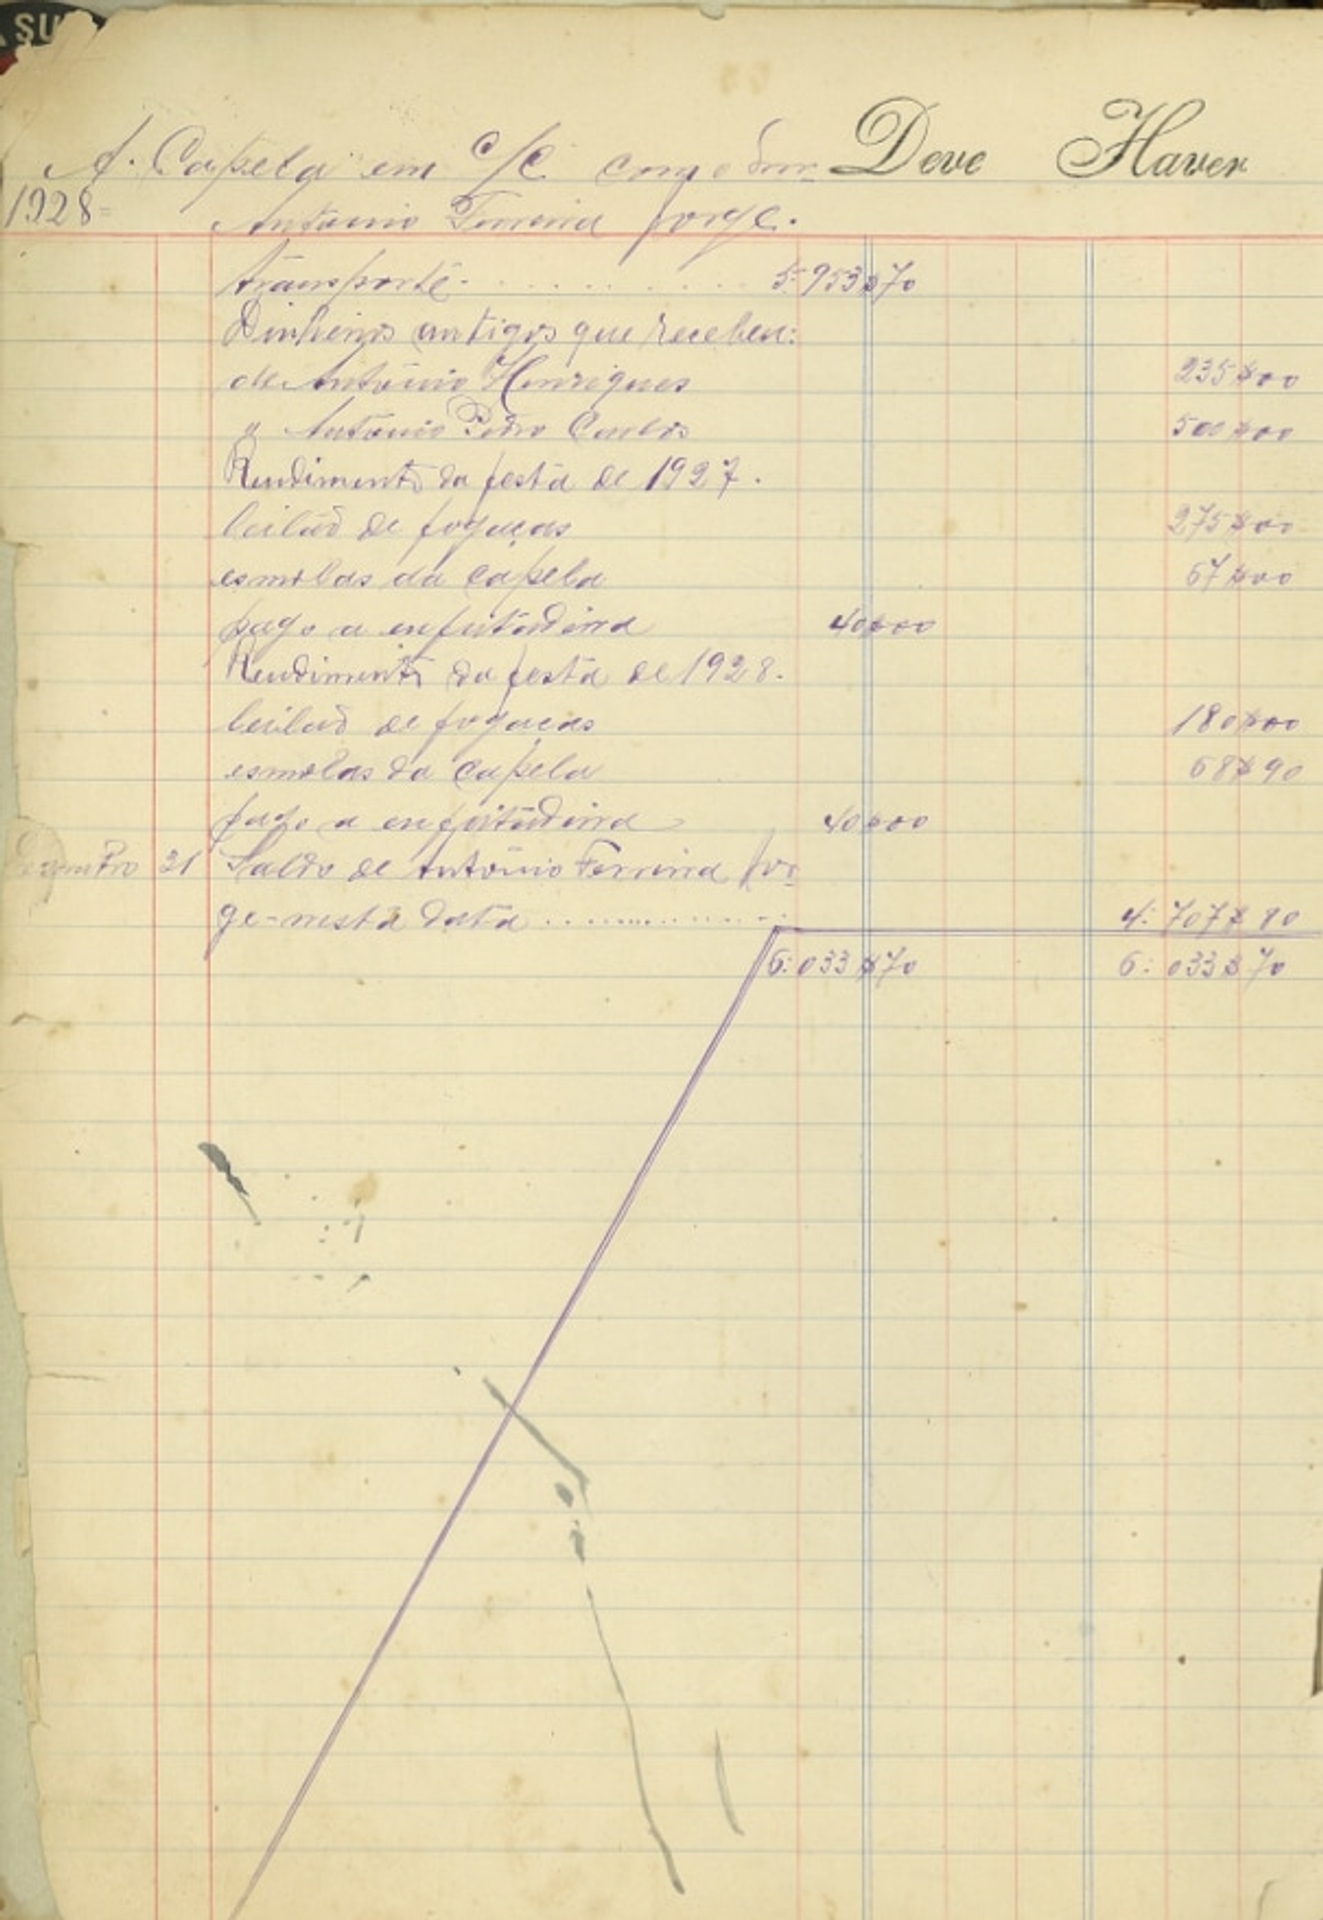 SU
A. Capela em c/c. com o Snr Deve Haver
1928 = António Ferreira Jorge.
transporte. . . . . . . . . . 5:953$70
Dinheiros antigos que recebeu:
de António Henriques 235$00
" António Pedro Carlos 500$00
Rendimento da festa de 1927.
leilão de fogaças 275$00
esmolas da capela 67$00
pago a enfeitadeira 40$00
Rendimento da festa de 1928.
leilão de fogaças 180$00
esmolas da capela 68$90
pago a enfeitadeira 40$00
Dezembro 31 Saldo de António Ferreira Jor=
ge-nesta data .............. 4:707$80
6:033$70 6:033$70